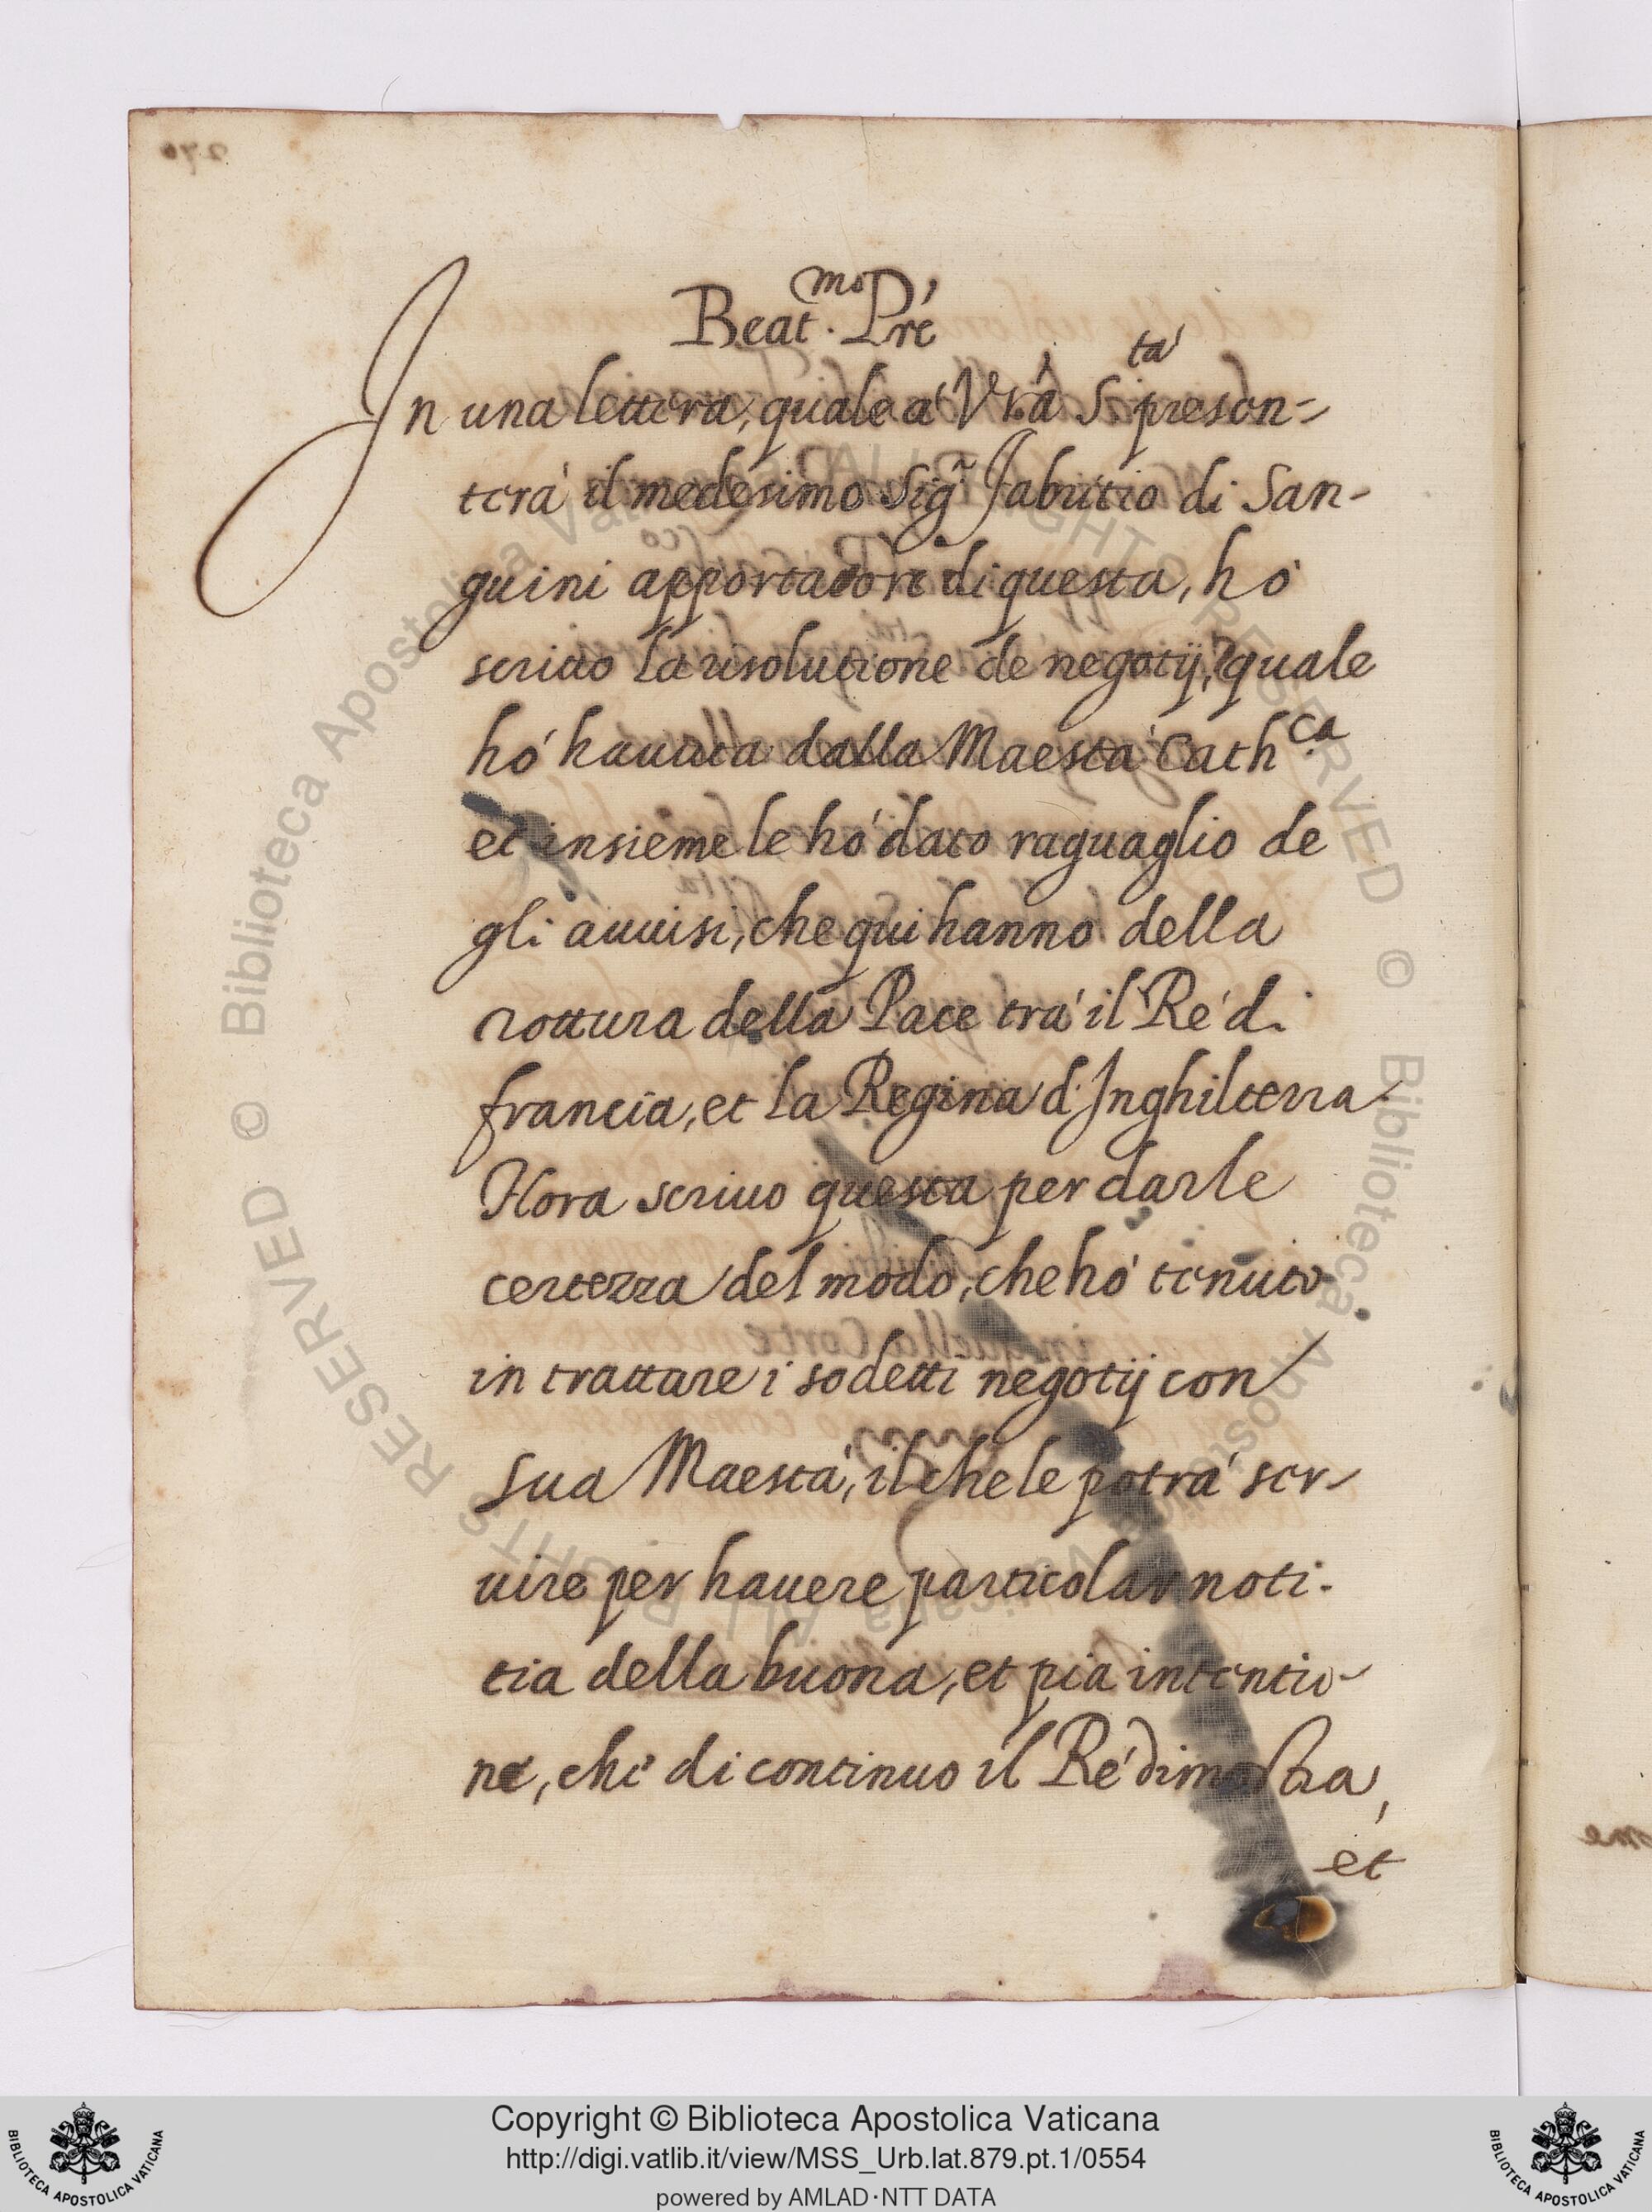 Beat.mo Pre
In una lettera, quale a' Vra S.ta' presen-
terà il medesimo Sig.r Fabritio di San-
guini apportatore di questa, hó
scritto la risolutione de negotij, quale
hó hauuta dalla Maestà Cath.ca
et insieme le hó dato raguaglio de
gli auuisi, che qui hanno della
rottura della Pace trà il Ré di
francia, et la Regina d'Inghilterra
Hora scriuo questa per darle
certezza del modo, che hó tenuto
in trattare i sodetti negotij con
sua Maestà, il che le potrà ser-
uire per hauere particolar noti-
tia della buona, et pia intentio-
ne, che di continuo il Ré dimostra,
et
Copyright © Biblioteca Apostolica Vaticana
http://digi.vatlib.it/view/MSS_Urb.lat.879.pt.1/0554
powered by AMLAD·NTT DATA
BIBLIOTECA APOSTOLICA VATICANA
BIBLIOTECA APOSTOLICA VATICANA